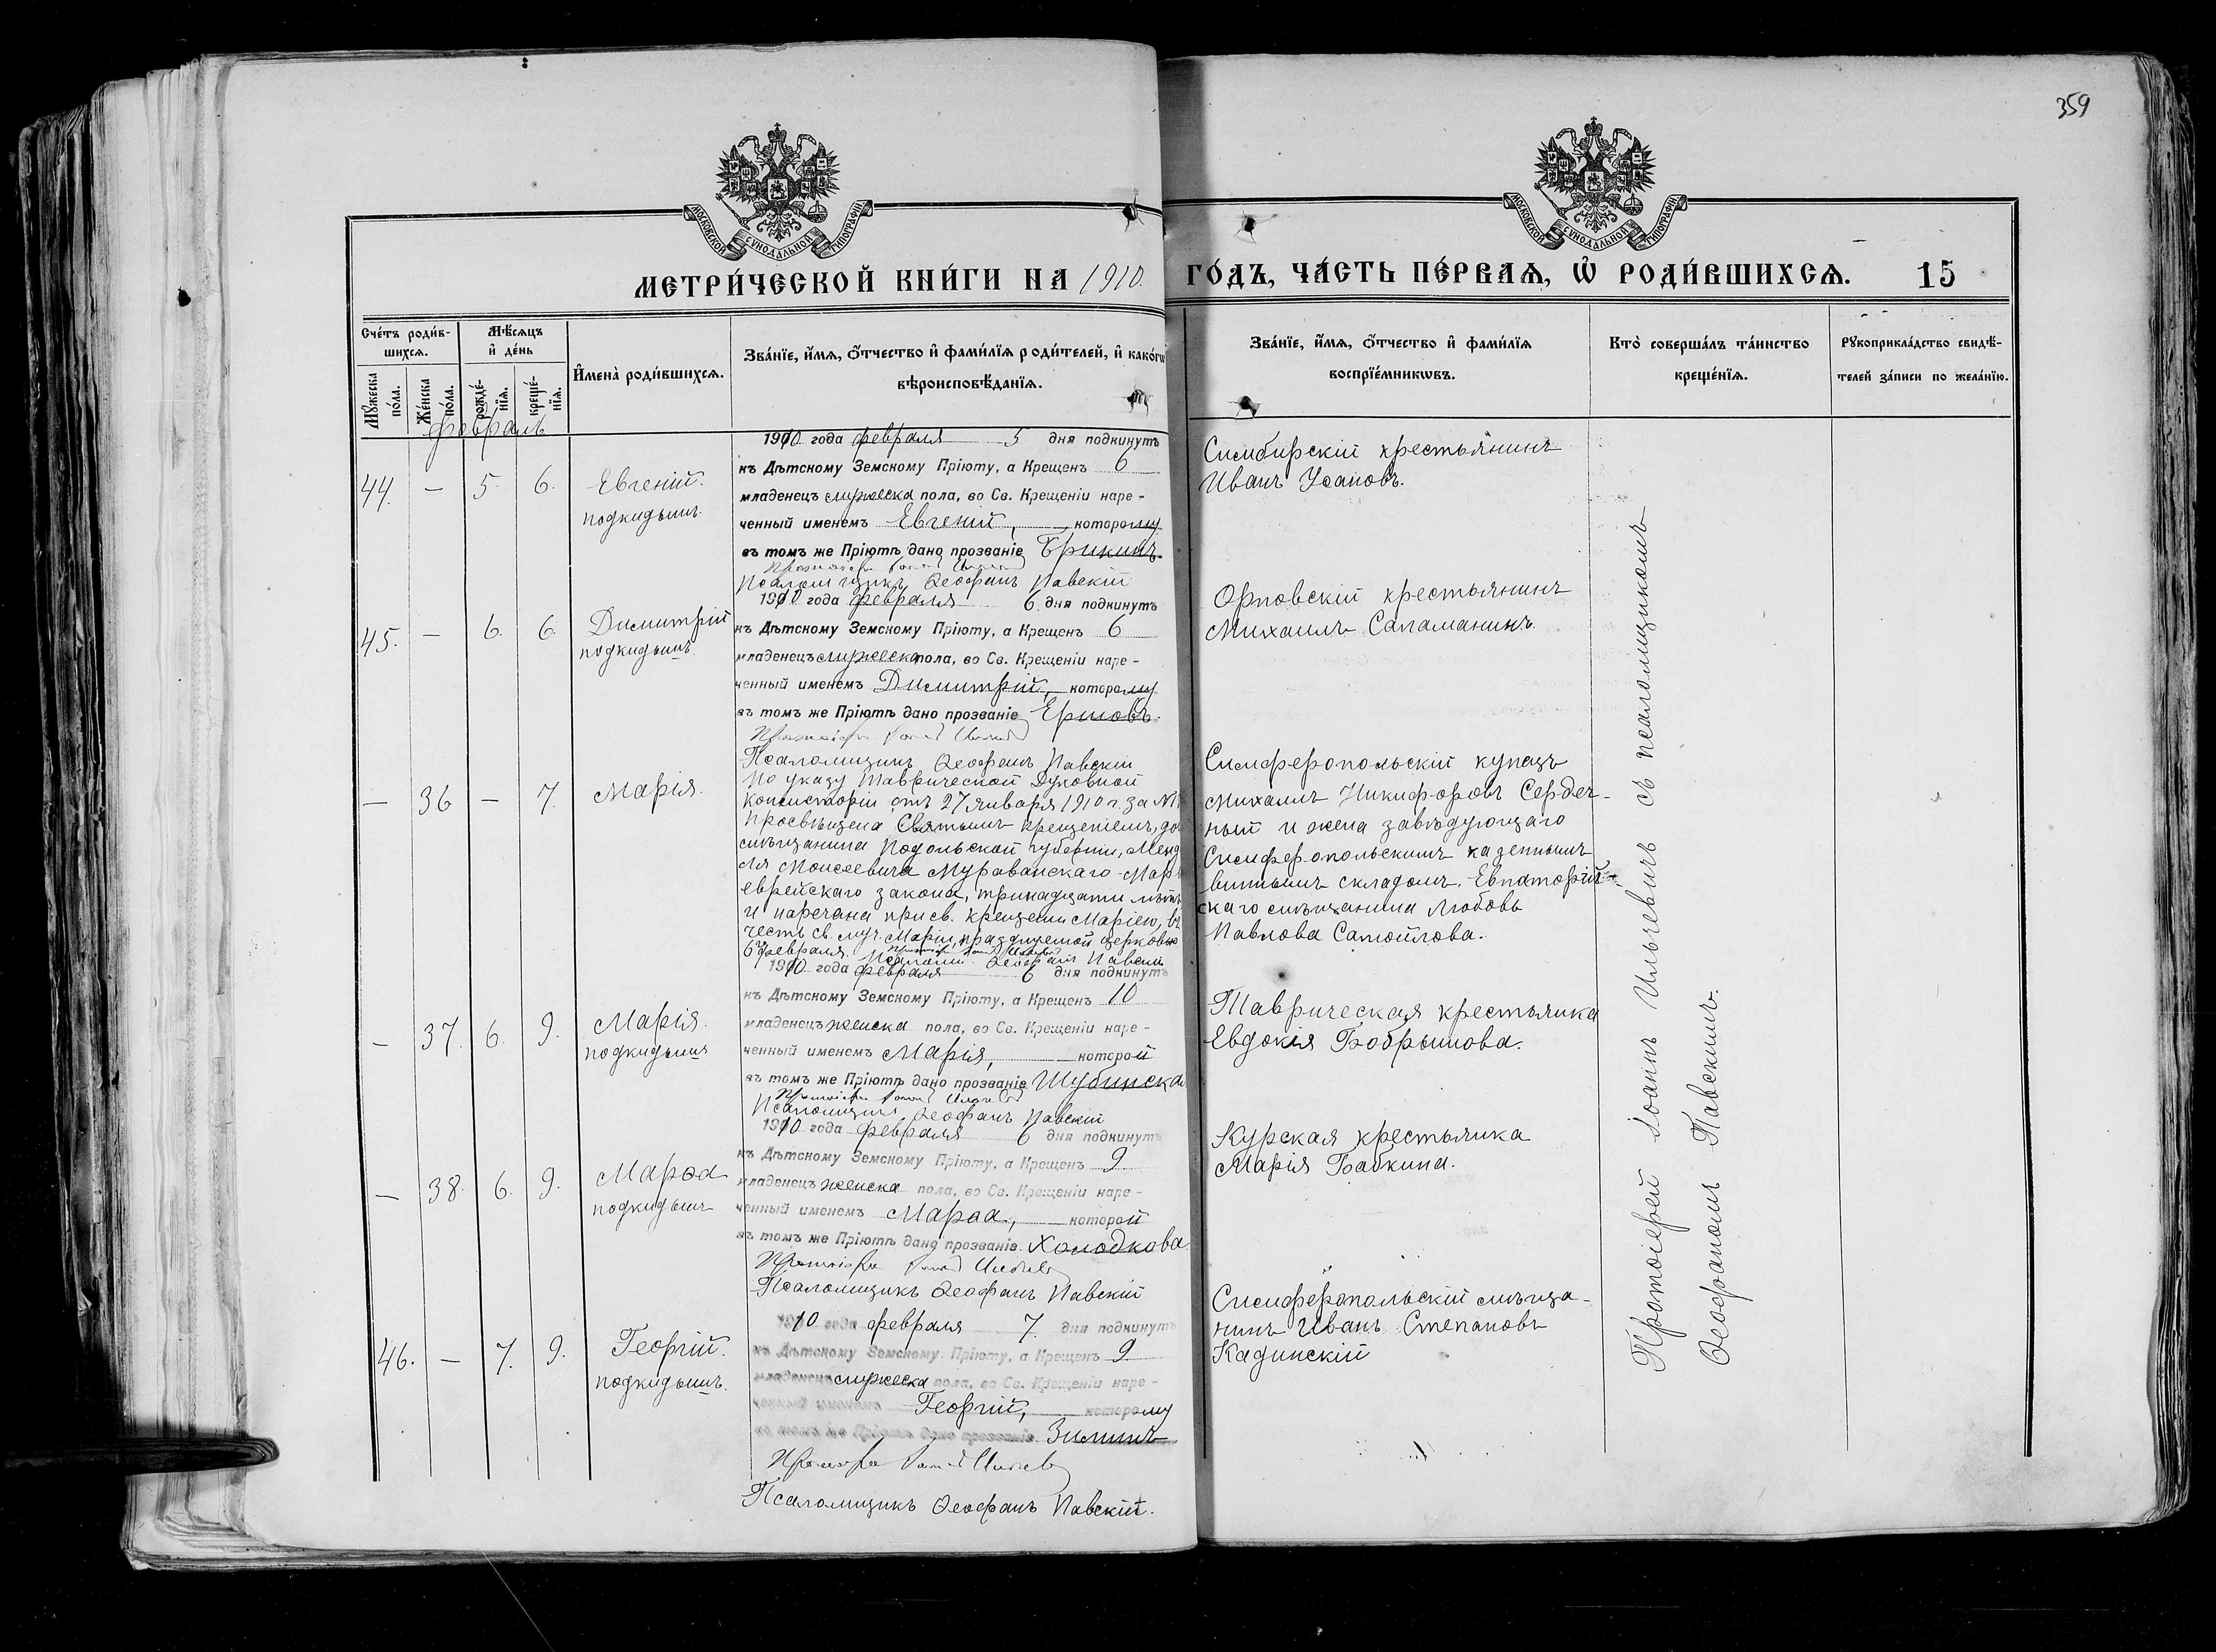 359
МОСКОВСКОЙ СѴНОДАЛЬНОЙ ТИПОГРАФІИ
МОСКОВСКОЙ СѴНОДАЛЬНОЙ ТИПОГРАФІИ
МЕТРИ́ЧЕСКОЙ КНИ́ГИ НА 1910.
ГО́ДЪ, ЧА́СТЬ ПЕ́РВАѦ, Ѡ҆ РОДИ́ВШИХСѦ.
15
Сче́тъ роди́в-
шихсѧ.
Мꙋ́жеска по́ла.
Же́нска по́ла.
Мѣ́сѧцъ
и҆ де́нь
рожде́-
нїѧ.
креще́-
нїѧ.
И҆мена̀ роди́вшихсѧ.
Зва́нїе, и҆́мѧ, ѻ҆́тчество и҆ фами́лїѧ роди́телей, и҆ како́гѡ
вѣроисповѣ́данїѧ.
Зва́нїе, и҆́мѧ, ѻ҆́тчество и҆ фами́лїѧ
воспрїе́мникѡвъ.
Кто̀ соверша́лъ та́инство
креще́нїѧ.
Рꙋкоприкла́дство свидѣ́-
телей за́писи по жела́нїю.
февраль
44. — 5. 6. Евгеній.
подкидышъ.
1910 года февраля 5 дня подкинутъ
къ Дѣтскому Земскому Пріюту, а Крещенъ 6
младенецъ мужеска пола, во Св. Крещеніи наре-
ченный именемъ Евгеній, которому
въ томъ же Пріютѣ дано прозваніе Брикинъ.
Псаломщикъ Ѳеофанъ Павскій
Симбирскій крестьянинъ
Иванъ Усановъ.
45. — 6. 6. Димитрій
подкидышъ.
1910 года февраля 6 дня подкинутъ
къ Дѣтскому Земскому Пріюту, а Крещенъ 6
младенецъ мужеска пола, во Св. Крещеніи наре-
ченный именемъ Димитрій, которому
въ томъ же Пріютѣ дано прозваніе Ершовъ.
Псаломщикъ Ѳеофанъ Павскій
Орловскій крестьянинъ
Михаилъ Саламанинъ.
— 36 — 7. Марія.
По указу Таврической Духовной
Консисторіи отъ 27 января 1910 г. за №
просвѣщена Святымъ крещеніемъ, до
мѣщанина Подольской губерніи, Менд
ля Моисеевича Мураванскаго -
еврейскаго закона, тринадцати лѣтъ
и наречена при св. крещеніи Маріею, въ
честь св. муч. Маріи, празднуемой церковью
6 февраля.
Псаломщ Ѳеофанъ Павскій
Симферопольскій купецъ
Михаилъ Никифоровъ Сердеч-
ный и жена завѣдующаго
Симферопольскимъ казеннымъ
виннымъ складомъ, Евпаторій-
скаго мѣщанина Любовь
Павлова Самойлова.
— 37. 6. 9. Марія.
подкидышъ
1910 года февраля 6 дня подкинутъ
къ Дѣтскому Земскому Пріюту, а Крещенъ 10
младенецъ женска пола, во Св. Крещеніи наре-
ченный именемъ Марія, которой
въ томъ же Пріютѣ дано прозваніе Шубинска
Псаломщикъ Ѳеофанъ Павскій
Таврическая крестьянка
Евдокія Бобрышова.
— 38. 6. 9. Марѳа
подкидышъ
1910 года февраля 6 дня подкинутъ
къ Дѣтскому Земскому Пріюту, а Крещенъ 9
младенецъ женска пола, во Св. Крещеніи наре-
ченный именемъ Марѳа, которой
въ томъ же Пріютѣ дано прозваніе Холодкова.
Псаломщикъ Ѳеофанъ Павскій
Курская крестьянка
Марія Бабкина.
46. — 7. 9. Георгій.
подкидышъ.
1910 года февраля 7. дня подкинутъ
къ Дѣтскому Земскому Пріюту, а Крещенъ 9
младенецъ мужеска пола, во Св. Крещеніи наре-
ченный именемъ Георгій, которому
въ томъ же Пріютѣ дано прозваніе Зиминъ
Псаломщикъ Ѳеофанъ Павскій.
Симферопольскій мѣща-
нинъ Иванъ Степановъ
Кадинскій
Протоіерей Іоаннъ Ильчевичъ съ псаломщикомъ
Ѳеофаномъ Павскимъ.